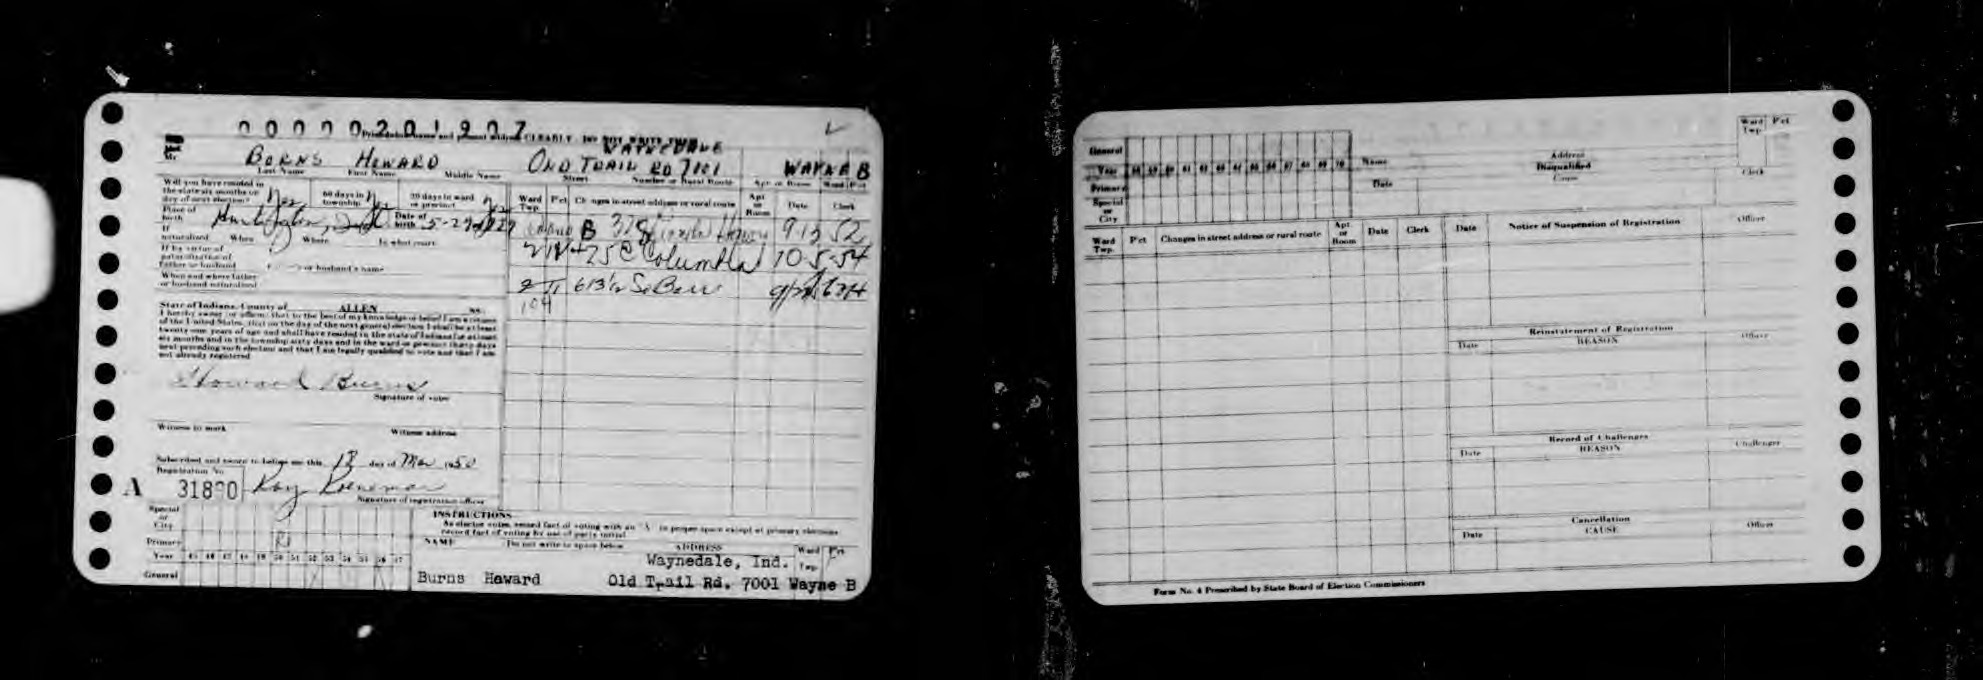 00000201907
Print date name and present address CLEARLY Do NOT WRITE
WAYNEDALE
Mr.
BURNS HOWARD OLD TRAIL RD 7101 WAYNE B
Last Name First Name Middle Name Street Number or Rural Route Apt or Room Ward Pct
Will you have resided in the state six months on day of next election? Yes 60 days in township Yes 30 days in ward or precinct Yes
Place of birth Huntington, Ind Date of birth 5-29-1927
If naturalized When Where In what court
If by virtue of naturalization of Father or husband or husband's name
When and where father or husband naturalized
State of Indiana, County of ALLEN SS:
I hereby swear (or affirm) that to the best of my knowledge or belief I am a citizen
of the United States, that on the day of the next general election I shall be at least
twenty-one years of age and shall have resided in the state of Indiana for at least
six months and in the township sixty days and in the ward or precinct thirty days
next preceding such election and that I am legally qualified to vote and that I am
not already registered
Howard Burns
Signature of voter
Witness to mark Witness address
Subscribed and sworn to before me this 13 day of Mar 1950
Registration No.
A 31890 Ray
Signature of registration officer
Ward Twp. Pct Changes in street address or rural route Apt or Room Date Clerk
B 9 13 52
475 E Columbia 10-5-54
2 11 613 1/2 So Barr
104
Special or City
Primary R
Year 45 46 47 48 49 50 51 52 53 54 55 56 57
General
INSTRUCTIONS
As elector votes, record fact of voting with an "X" in proper space except at primary elections
record fact of voting by use of party initial
NAME Do not write in space below ADDRESS Ward Twp. Pct
Waynedale, Ind.
Burns Howard Old Trail Rd. 7001 Wayne B
General
Year 58 59 60 61 62 63 64 65 66 67 68 69 70
Primary
Special or City
Name Address
Date Disqualified Cause Clerk
Ward Twp. Pct
Ward Twp. Pct Changes in street address or rural route Apt or Room Date Clerk
Date Notice of Suspension of Registration Officer
Reinstatement of Registration
Date REASON Officer
Record of Challenges
Date REASON Challenger
Cancellation
Date CAUSE Officer
Form No. 4 Prescribed by State Board of Election Commissioners